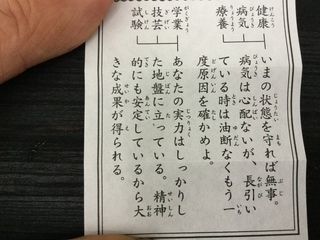 健康
病気
療養
いまの状態を守れば無事。
病気は心配ないが、長引い
ている時は油断なくもう一
度原因を確かめよ。
学業
技芸
試験
あなたの実力はしっかりし
た地盤に立っている。精神
的にも安定しているから大
きな成果が得られる。